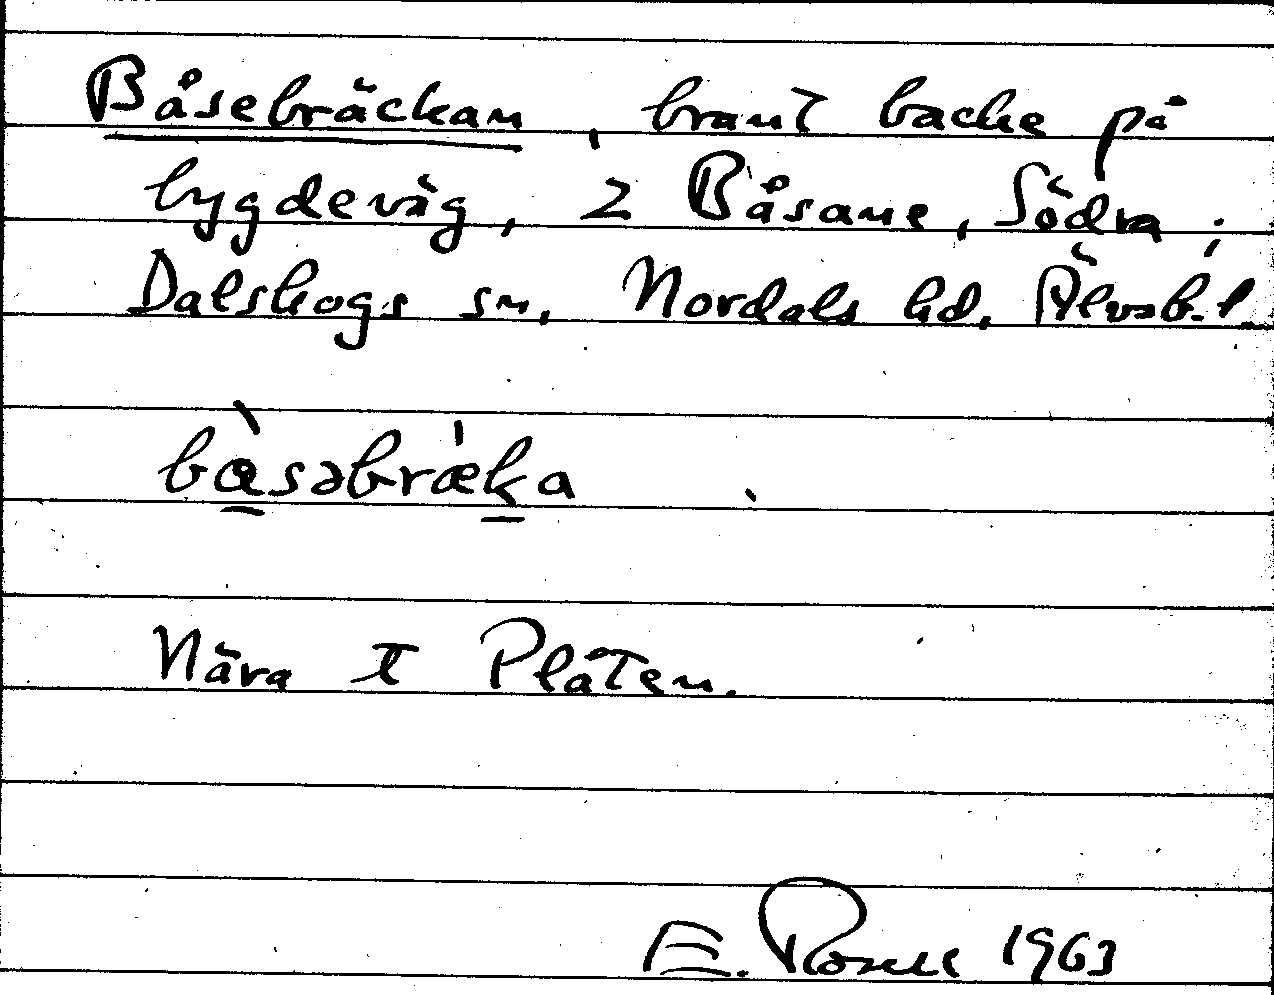 Båsebräckan, brant backe på
bygdeväg, 2 Båsane, Södra;
Dalskogs sn, Nordals hd, Älvsb. l.
bàsəbrækа
Nära t Plåten.
E. Rosell 1963